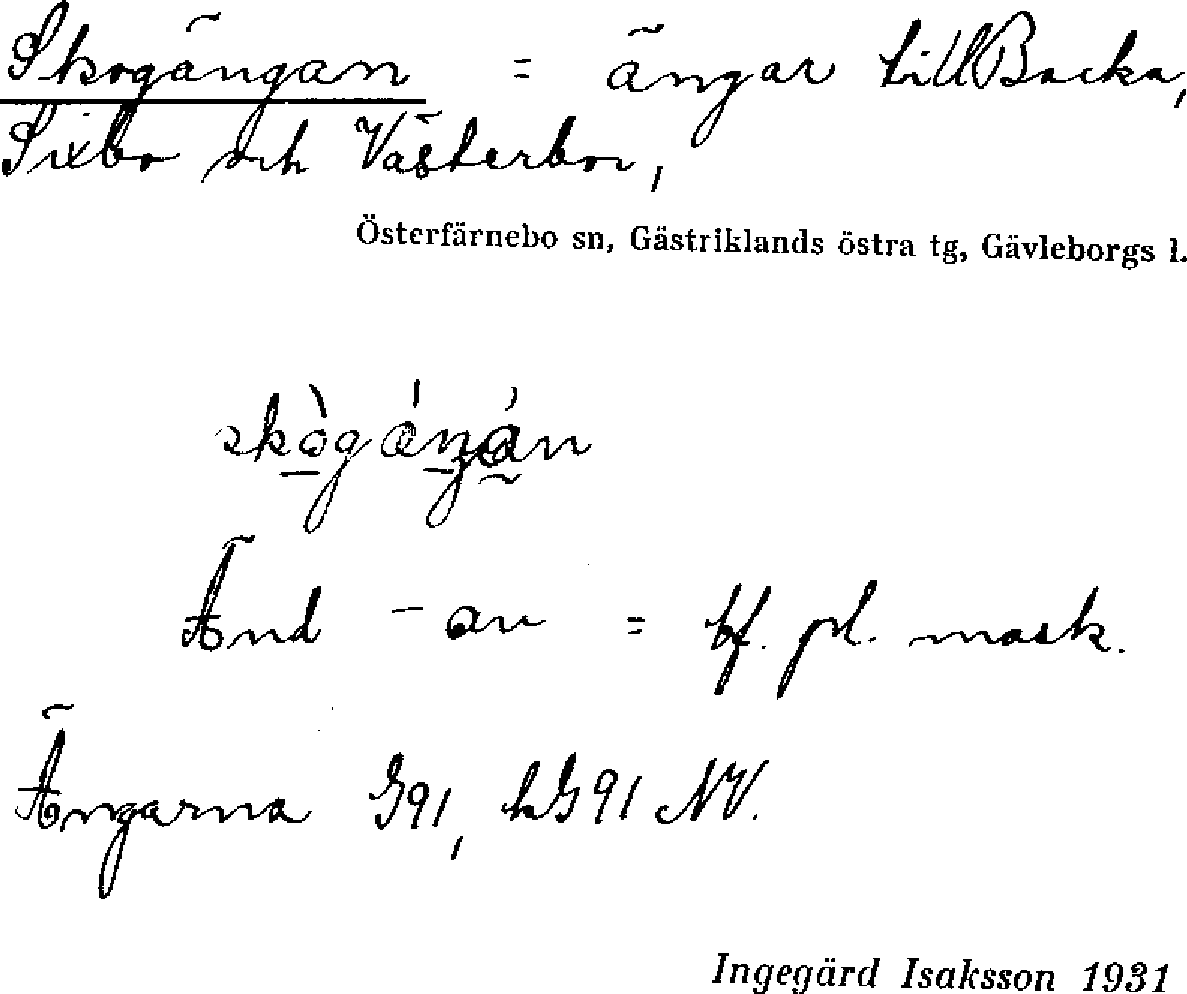 Skogängan = ängar till Backa,
Sixbo och Västerbo,
Österfärnebo sn, Gästriklands östra tg, Gävleborgs l.
Änd -an = bf. pl. mask.
Ängarna G91, kG91 NV.
Ingegärd Isaksson 1931